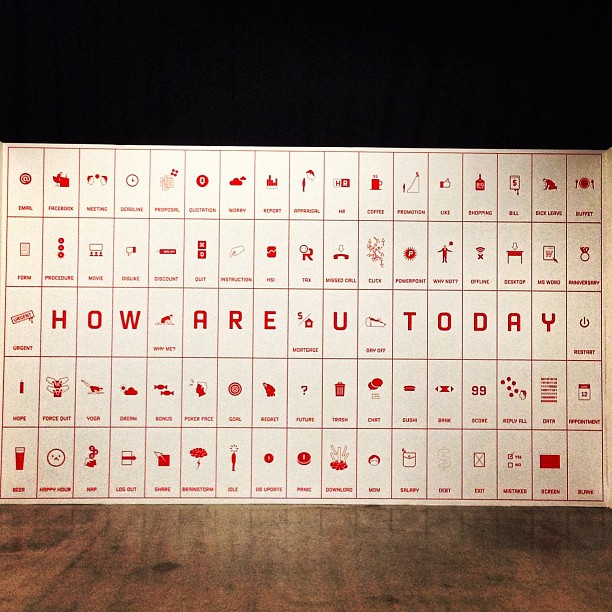 EMAIL FACEBOOK MEETING DEADLINE PROPOSAL QUOTATION WORRY REPORT APPRAISAL HR COFFEE PROMOTION LIKE SHOPPING BILL SICK LEAVE BUFFET
FORM PROCEDURE MOVIE DISLIKE DISCOUNT QUIT INSTRUCTION HSI TAX MISSED CALL CLICK POWERPOINT WHY NOT? OFFLINE DESKTOP MS WORD ANNIVERSARY
HOW ARE U TODAY
URGENT WHY ME? MORTGAGE DAY OFF RESTART
HOPE FORCE QUIT YOGA DREAM BONUS POKER FACE GOAL REGRET FUTURE TRASH CHAT SUSHI BANK SCORE REPLY ALL DATA APPOINTMENT
BEER HAPPY HOUR NAP LOG OUT SHARE BRAINSTORM IDLE OS UPDATE PANIC DOWNLOAD MOM SALARY DEBT EXIT MISTAKES SCREEN BLANK